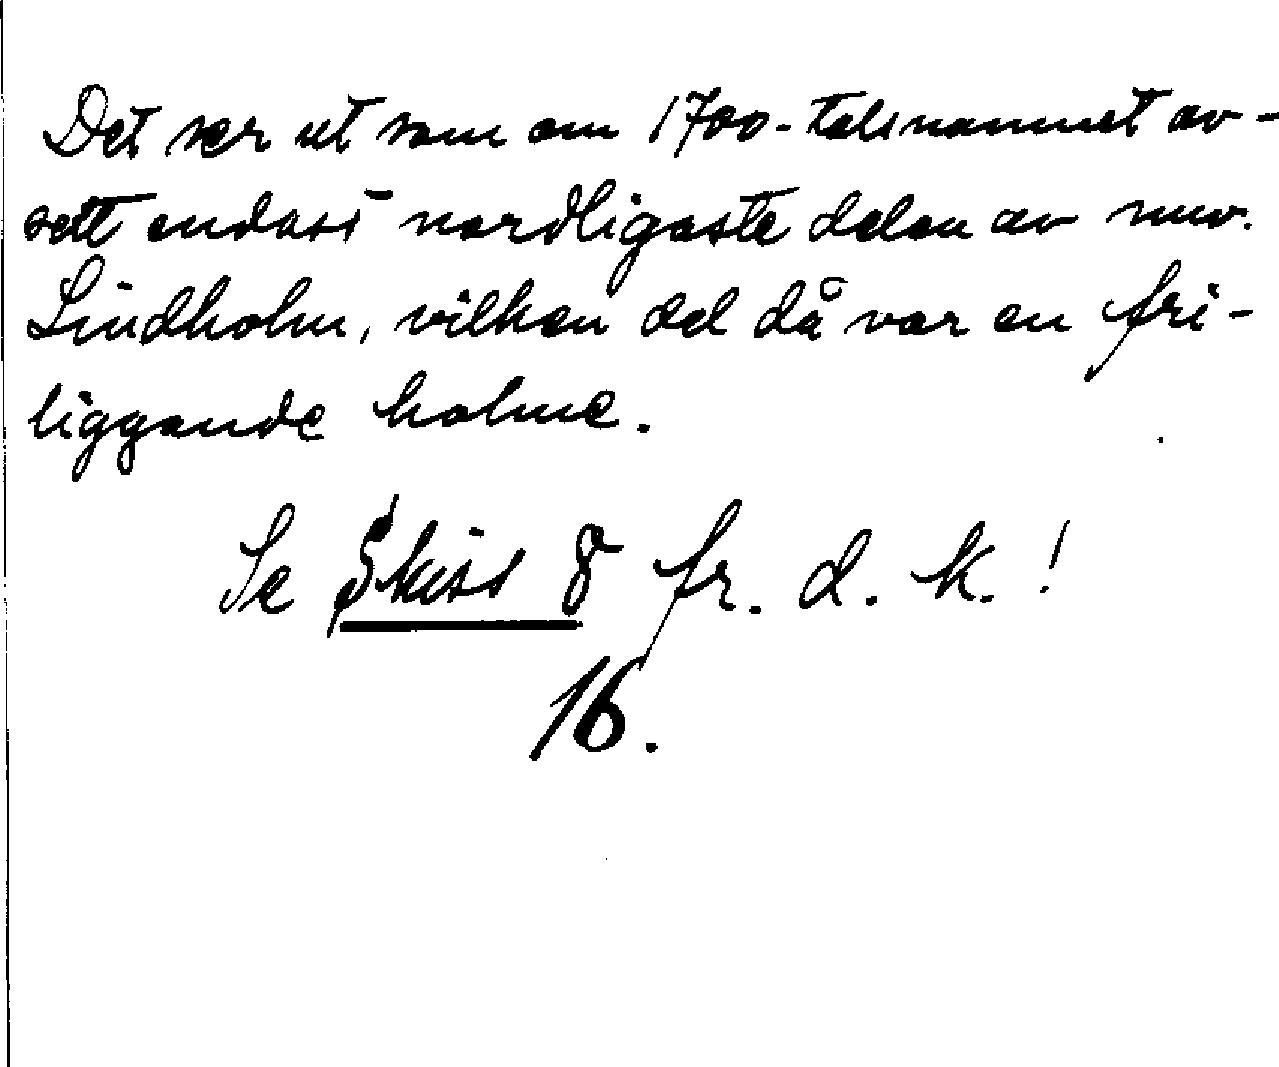 Det ser ut som om 1700-talsnamnet av-
sett endast nordligaste delen av nuv.
Lindholm, vilken del då var en fri-
liggande holme.
Se Skiss 8 fr. d. k.!
16.